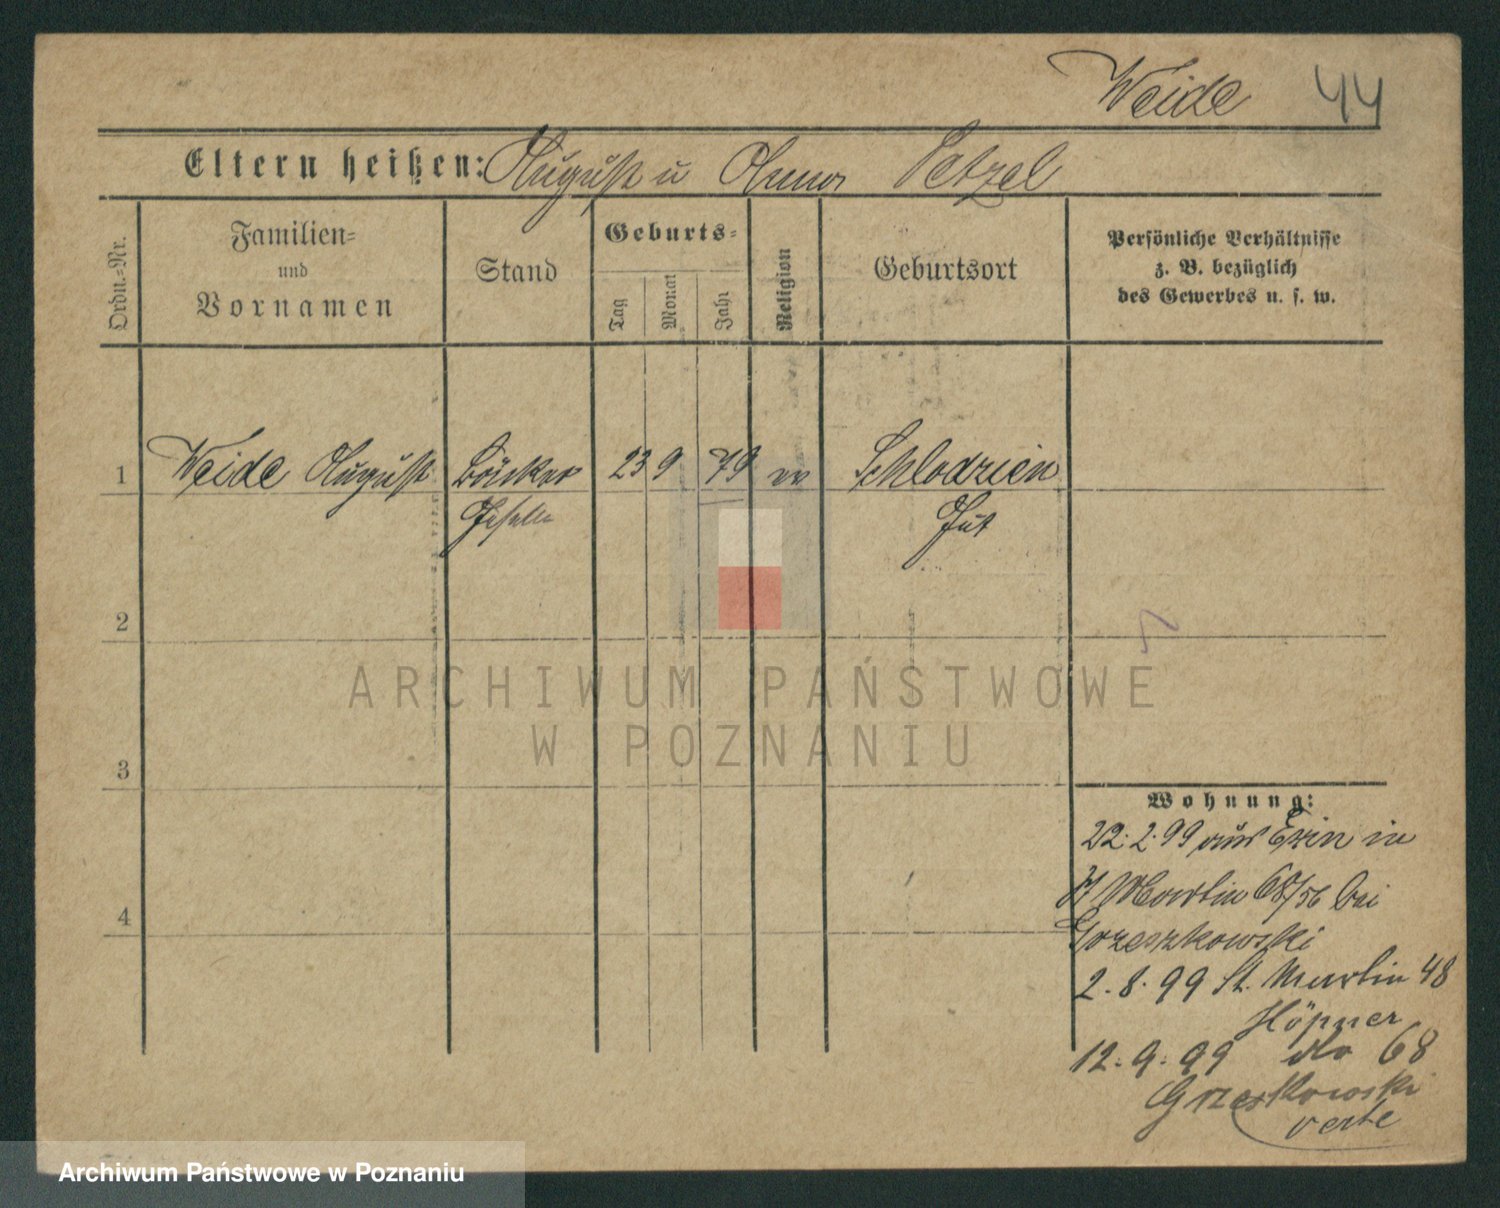 Weide 44
Eltern heißen: August u Anna Petzel
Ordn.=Nr.
Familien=
und
Vornamen
Stand
Geburts=
Tag
Monat
Jahr
Religion
Geburtsort
Persönliche Verhältnisse
z. B. bezüglich
des Gewerbes u. s. w.
1 Weide August 23 9 79 ev Schlodzien
Gut
2
ARCHIWUM PAŃSTWOWE
W POZNANIU
3
Wohnung:
22.2.99 aus Exin in
Martin 68/56 bei
4
Grzeszkowski
2.8.99 St. Martin 48
Höpner
12.9.99 do 68
Grzeskowski
verte
Archiwum Państwowe w Poznaniu